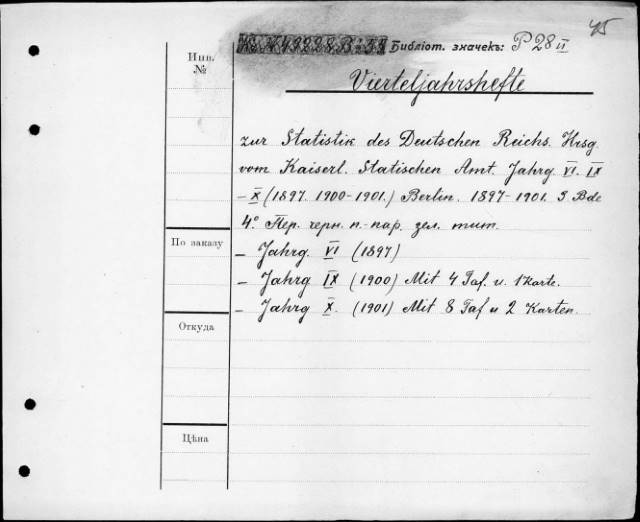 45
Библіот. значекъ: P 28 II
Инв.
№
Vierteljahrshefte
zur Statistik des Deutschen Reichs. Hrsg.
vom Kaiserl. Statischen Amt. Jahrg. VI. IX
– X (1897. 1900-1901.) Berlin. 1897-1901. 3 Bde
4° Пер. черн. п.-пар. зел. тит.
По заказу
– Jahrg. VI (1897)
– Jahrg IX (1900) Mit 4 Taf. u. 1 Karte.
– Jahrg X. (1901) Mit 8 Taf u 2 Karten.
Откуда
Цѣна